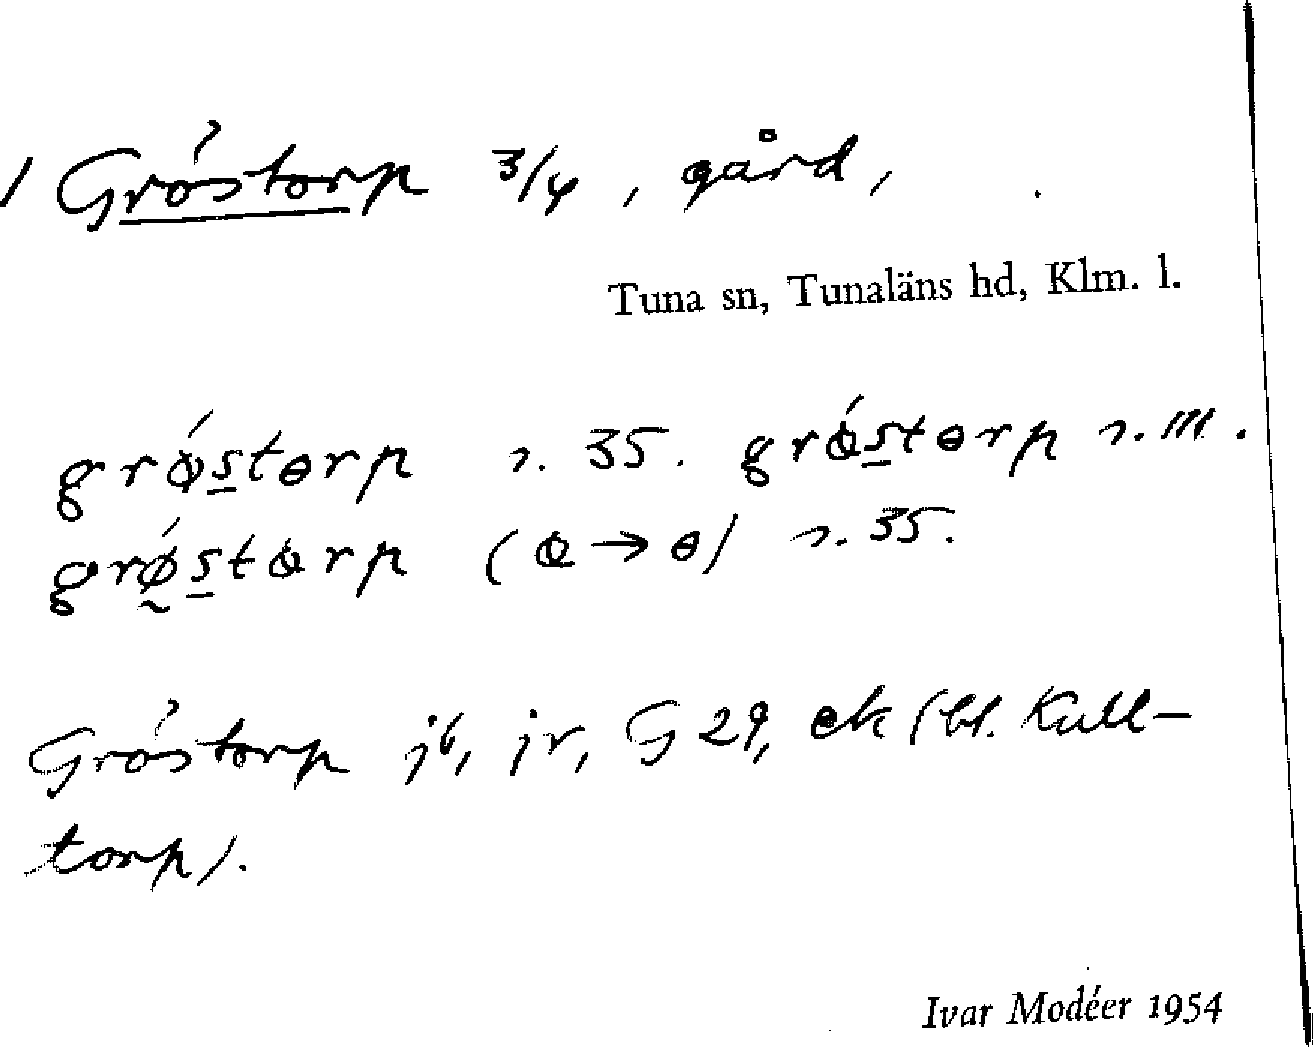 1 Gröstorp 3/4, gård,
Tuna sn, Tunaläns hd, Klm. l.
grǿstɵrp s. 35. grǿstɵrp s. III.
grǿ̰stɵrp (ɵ → ɵ) s. 35.
Gröstorp jb, jr, G 29, ek (bl. Kull-
torp).
Ivar Modéer 1954